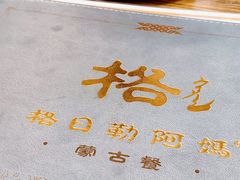 格
格日勒阿媽
·蒙古餐·